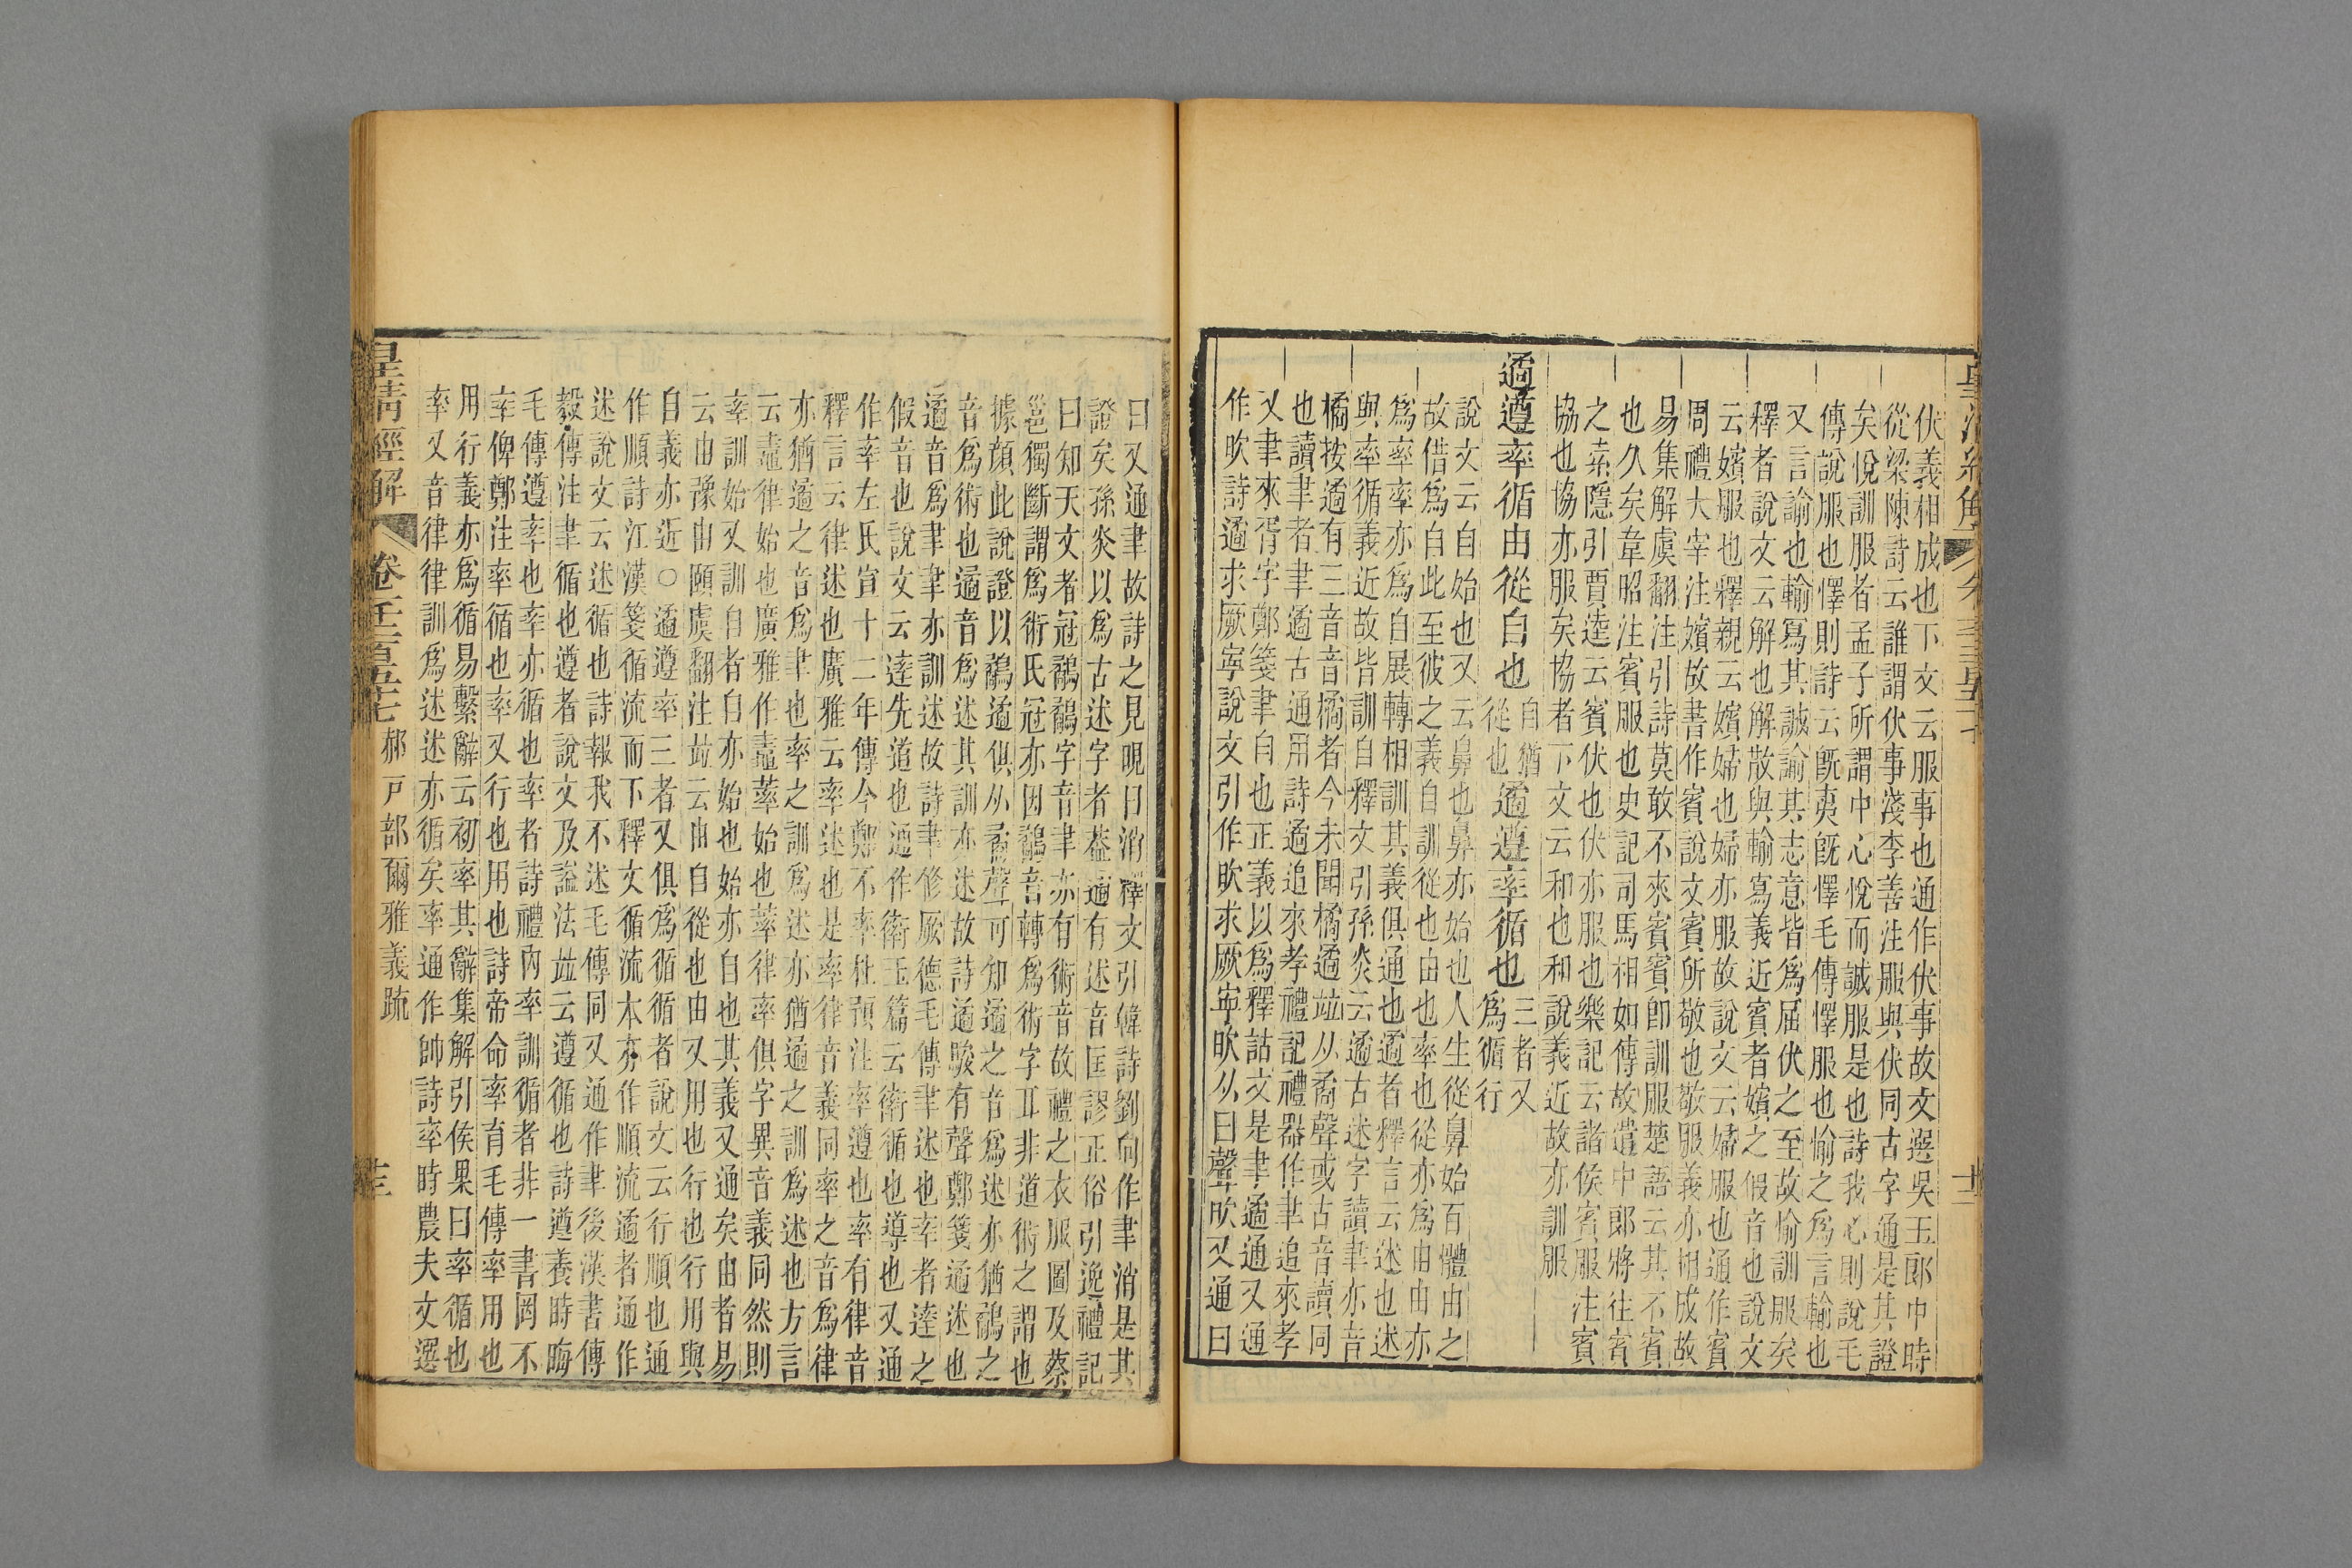 伏義相成也下文云服事也通作伏事故文選吳王郎中時
從梁陳詩云誰謂伏事淺李善注服與伏同古字通是其證
矣悅訓服者孟子所謂中心悅而誠服是也詩我心則說毛
傳說服也懌則詩云旣夷旣懌毛傳懌服也愉之爲言輸也
又言諭也輸寫其誠諭其志意皆爲屈伏之至故愉訓服矣
釋者說文云解也解散與輸寫義近賓者嬪之假音也說文
云嬪服也釋親云嬪婦也婦亦服故說文云婦服也通作賓
周禮大宰注嬪故書作賓說文賓所敬也敬服義亦相成故
易集解虞翻注引詩莫敢不來賓賓卽訓服楚語云其不賓
也久矣韋昭注賓服也史記司馬相如傳故遣中郎將往賓
之索隱引賈逵云賓伏也伏亦服也樂記云諸侯賓服注賓
協也協亦服矣協者下文云和也和說義近故亦訓服
遹遵率循由從自也自猶從也遹遵率循也三者又爲循行
說文云自始也又云鼻也鼻亦始也人生從鼻始百體由之
故借爲自此至彼之義自訓從也由也率也從亦爲由由亦
爲率率亦爲自展轉相訓其義俱通也遹者釋言云述也述
與率循義近故皆訓自釋文引孫炎云遹古述字讀聿亦音
橘按遹有三音音橘者今未聞橘遹竝从矞聲或古音讀同
也讀聿者聿遹古通用詩遹追來孝禮記禮器作聿追來孝
又聿來胥宇鄭箋聿自也正義以爲釋詁文是聿遹通又通
作吹詩遹求厥寧說文引作吹求厥寧吹从曰聲吹又通曰
曰又通聿故詩之見晛曰消釋文引韓詩劉向作聿消是其
證矣孫炎以爲古述字者葢遹有述音匡謬正俗引逸禮記
曰知天文者冠鷸鷸字音聿亦有術音故禮之衣服圖及蔡
邕獨斷謂爲術氏冠亦因鷸音轉爲術字耳非道術之謂也
據顏此說證以鷸遹俱从矞聲可知遹之音爲述亦猶鷸之
音爲術也遹音爲述其訓亦述故詩遹駿有聲鄭箋遹述也
遹音爲聿聿亦訓述故詩聿修厥德毛傳聿述也率者逹之
假音也說文云逹先道也通作衛玉篇云衛循也導也又通
作率左氏宣十二年傳今鄭不率杜預注率遵也率有律音
釋言云律述也廣雅云率述也是率律音義同率之音爲律
亦猶遹之音爲聿也率之訓爲述亦猶遹之訓爲述也方言
云䔾律始也廣雅作䔾萃始也萃律率俱字異音義同然則
率訓始又訓自者自亦始也始亦自也其義又通矣由者易
云由豫由頤虞翻注竝云由自從也由又用也行也行用與
自義亦近○遹遵率三者又俱爲循循者說文云行順也通
作順詩江漢箋循流而下釋文循流本亦作順流遹者通作
述說文云述循也詩報我不述毛傳同又通作聿後漢書傳
毅傳注聿循也遵者說文及諡法竝云遵循也詩遵養時晦
毛傳遵率也率亦循也率者詩禮內率訓循者非一書罔不
率俾鄭注率循也率又行也用也詩帝命率育毛傳率用也
用行義亦爲循易繫辭云初率其辭集解引侯果曰率循也
率又音律律訓爲述述亦循矣率通作帥詩率時農夫文選
皇清經解 卷千二百五十七 郝戶部爾雅義疏 十三